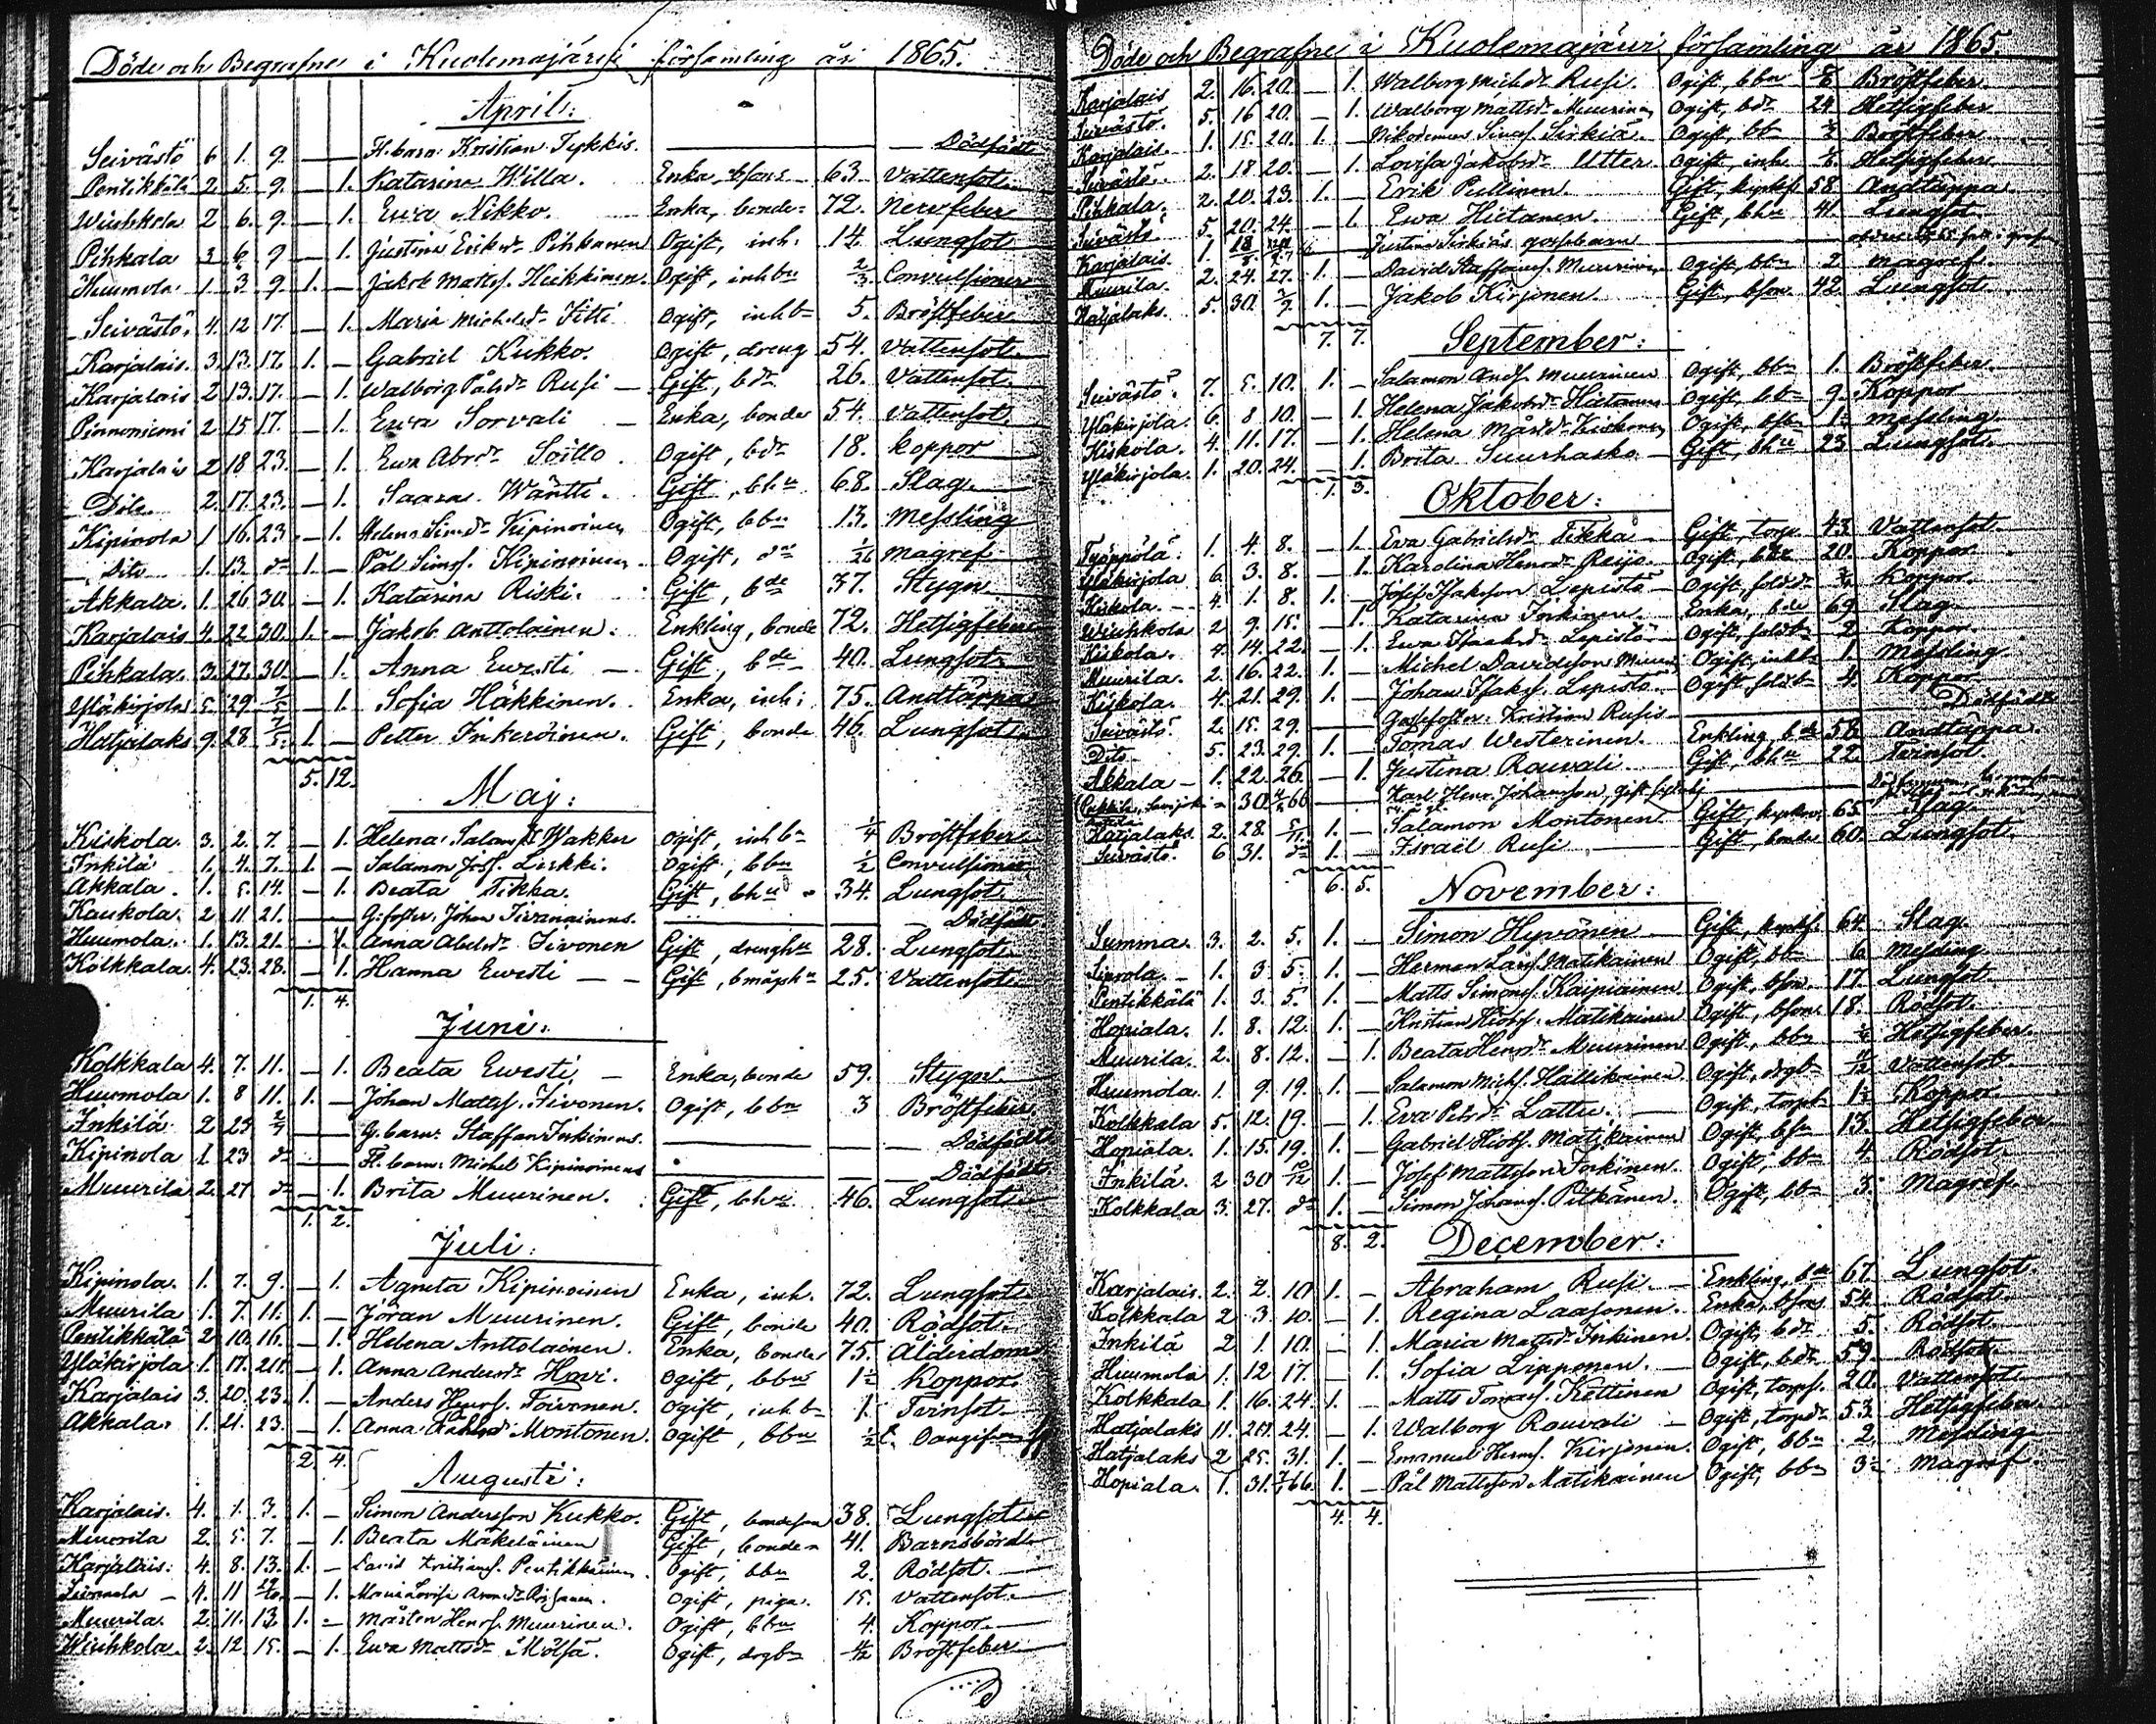 Döde och Begrafne i Kuolemajärvi församling år 1865.
April:
Seivästö 6. 1. 9. — — Fl. barn: Kristian Tykkis. — Dödfödt
Pentikkälä 2. 5. 9. — 1. Katarina Willa. Enka, 63. Vattensot.
Wiuhkola 2 6. 9. — 1. Ewa Nikko. Enka, bonde- 72. Nervfeber
Pihkala 3 6. 9 — 1. Justina Eriksdr Pihkanen Ogift, inh: 14. Lungsot
Huumola 1. 3. 9. 1. — Jakob Mattss. Heikkinen. Ogift, inhbn 2/3 Convulsioner
Seivästö 4. 12 17. — 1. Maria Michelsdr Titti Ogift, inhbn 5. Bröstfeber
Karjalais. 3. 13. 17. 1. — Gabriel Kukko. Ogift, dreng 54. Vattensot.
Karjalais 2 13. 17. — 1. Walborg Pålsdr Rusi — Gift, bdr 26. Vattensot.
Pinnoniemi 2 15 17. — 1. Ewa Sorvali — Enka, bonde 54. Vattensot.
Karjalais 2 18 23. — 1. Ewa Abrdr Soitto. Ogift, bdr 18. koppor
Dito 2. 17. 23. — 1. Saara Wäntti. Gift, bhu 68. Slag.
Kipinola 1 16. 23 — 1. Helena Simsdr Kipinoinen Ogift, bbn 13. Messling
Dito 1. 13. do 1. — Pål Simss. Kipinoinen Ogift, do 1/26 Magref
Akkala. 1. 26 30. — 1. Katarina Riski. Gift, bde 37. Stygn.
Karjalais 4. 22 30. 1. — Jakob Anttolainen. Enkling, bonde 72. Hetsigfeber
Pihkala. 3. 27. 30. — 1. Anna Ewesti — Gift, bde 40. Lungsot.
Yläkirjola 5. 29. 7/5 — 1. Sofia Häkkinen. Enka, inh: 75. Andtäppa
Hatjalaks 9. 28 7/5. 1. — Petter Inkeröinen. Gift, bonde 46. Lungsot.
5. 12.
Maj:
Kiskola. 3. 2. 7. — 1. Helena Salamsdr Wakker Ogift, inhbn 1/4 Bröstfeber
Inkilä 1. 4. 7. 1. — Salamon Joss. Lirkki. Ogift, bbn 1/2 Convulsioner
Akkala. 1. 5. 14. — 1. Beata Tikka. Gift, bhu 34. Lungsot.
Kaukola. 2. 11 21. — — G:foster, Johan Tivanainens. — Dödfödt
Huumola. 1. 13. 21. — 1. Anna Abelsdr Iivonen Gift, drenghu 28. Lungsot.
Kolkkala. 4. 23. 28. — 1. Hanna Ewesti — Gift, 25. Vattensot.
1. 4.
Juni:
Kolkkala 4. 7. 11. — 1. Beata Ewesti — Enka, bonde 59. Stygn.
Huumola 1. 8 11. 1. — Johan Mattss. Iivonen. Ogift, bbn 3 Bröstfeber
Inkilä 2 23 2/7 — — G. barn: Staffan Inkinens. — Dödfödt
Kipinola 1 23 do — — Fl. barn: Michel Kipinoinens — Dödfödt
Muurila 2. 27 do — 1. Brita Muurinen. Gift, bhu. 46. Lungsot.
1. 2.
Juli:
Kipinola. 1. 7. 9. — 1. Agneta Kipinoinen Enka, inh. 72. Lungsot.
Muurila 1. 7. 11. 1. — Jöran Muurinen. Gift, bonde 40. Rödsot.
Pentikkälä 2 10. 16. — 1. Helena Anttolainen. Enka, bonde 75. Ålderdom
Yläkirjola 1. 17. 20. — 1. Anna Andersdr Hovi. Ogift, bbn 1 1/2 Koppor
Karjalais 3. 20. 23. 1. — Anders Henrss. Toivonen. Ogift, inhbn 1. Tvinsot.
Akkala. 1. 21. 23. — 1. Anna Montonen. Ogift, bbn 1/2 Oangifven
2. 4.
Augusti:
Karjalais. 4. 1. 3. 1. — Simon Andersson Kukko. Gift, bondeson 38. Lungsot
Muurila 2. 5. 7. — 1. Beata Mäkeläinen Gift, bonde 41. Barnsbörd
Karjalais: 4. 8. 13. 1. — David Kristianss. Pentikkäinen. Ogift, bbn 2. Rödsot.
4. 11 — 1. Maria Lovisa Ogift, piga. 15. Vattensot.
Muurila. 2. 11. 13 1. — Mårten Henrss. Muurinen. Ogift, bbn 4. Koppor.
Wiuhkola 2. 12. 15. — 1. Ewa Mattsdr Mölsä. Ogift, drgbn 4/12 Bröstfeber
Döde och Begrafne i Kuolemajärvi församling år 1865.
Karjalais 2. 16. 20. — 1. Walborg Michdr Rusi. Ogift, bbn Bröstfeber.
Seivästö. 5. 16 20. — 1. Walborg Mattsdr Muurinen Ogift, bdr 24 Hetsigfeber
Karjalais. 1. 15. 20. 1. — Nikodemus Simss. Sirkiä. Ogift, bbn Bröstfeber
Seivästö. 2. 18 20. — 1. Lovisa Jakobsdr Utter. Ogift, inh. Hetsigfeber
Pihkala. 2. 20. 23. 1. — Erik Pullinen. Gift, 58. Andtäppa
Seivästö 5. 20. 24. — 1. Ewa Hietanen. Gift, bhu 41. Lungsot.
Karjalais 1. Justina Sirkiäs gossebarn
Muurila. 2. 24. 27. 1. — David Staffanss. Muurinen Ogift, bbn 2 magref.
Hatjalaks 5. 30. 3/9. 1. — Jakob Kirjonen. Gift, bson 42. Lungsot.
7. 7.
September:
Seivästö. 7. 5. 10. 1. — Salamon Ands. Muurinen Ogift, bbn 1. Bröstfeber.
Yläkirjola. 6. 8 10. — 1. Helena Jakobsdr Hietanen Ogift, bbn 9. Koppor
Kiskola. 4. 11. 17. — 1. Helena Ogift, 1. Messling.
Yläkirjola. 1. 20. 24. — 1. Brita Suurhasko — Gift, bhu 23 Lungsot.
1. 3.
Oktober:
Työppölä. 1. 4. 8. — 1. Eva Gabrielsdr Tikka — Gift, torp. 43. Vattensot.
Yläkirjola 6. 3. 8. — 1. Karolina Henrdr Reijo. Ogift, 20. Koppor
Kiskola. 4. 1. 8. 1. — Josef Isaksson Lepistö — Ogift, Koppor.
Wiuhkola 2 9. 15. — 1. Katarina Inkinen. Enka, bde 69. Slag.
Kiskola. 4. 14. 22. — 1. Ewa Isaksdr Lepistö Ogift, 2 Koppor
Muurila. 2. 16. 22. 1. — Michel Davidsson Muurinen Ogift, inhbn 1. Messling.
Kiskola. 4. 21. 29. 1. — Johan Isakss. Lepistö. Ogift, 4. Koppor
Seivästö. 2. 15. 29. — Kristian Rusis — Dödfödt
Dito 5. 23. 29. 1. — Tomas Westerinen. Enkling, bde 58 Andtäppa.
Akkala — 1. 22. 26. — 1. Justina Rouvali Gift, bhu 22. Tvinsot.
30. Karl Henr. Johansson, gift
Hatjalaks. 2. 28. 5/11 1. — Salamon Montonen Gift, 65. Slag.
Seivästö. 6 31. do 1. — Israël Rusi — Gift, bonde 60. Lungsot.
6. 5.
November:
Summa. 3. 2. 5. 1. — Simon Hyvönen — Gift, 64. Slag.
1. 3. 5. 1. — Herman Larss. Matikainen Ogift, bbn 6. Messling
Pentikkälä 1. 3. 5. 1. — Matts Simonss. Kaipiainen Ogift, bson. 17. Lungsot.
Hopiala. 1. 8. 12. 1. — Kristian Matikainen Ogift, bson. 18. Rödsot.
Muurila. 2. 8. 12. — 1. Beata Henrsdr Muurinen Ogift, bbn Hetsigfeber.
Huumola. 1. 9. 19. 1. — Salamon Michss. Hallikainen. Ogift, drgbn Vattensot.
Kolkkala 5. 12. 19. — 1. Eva Petrsdr Lattu. — Ogift, torpbn Koppor
Hopiala. 1. 15. 19. 1. — Gabriel Matikainen Ogift, bsn 13. Hetsigfeber
Inkilä. 2 30 10/12 1. — Josef Mattsson Inkinen. Ogift, bbn 4. Rödsot.
Kolkkala 3. 27. do 1. — Simon Johanss. Pitkänen. Ogift, bbn 3. Magref.
8. 2.
December:
Karjalais. 2. 2. 10 1. — Abraham Rusi. — Enkling, bde 67. Lungsot.
Kolkkala 2 3 10. — 1. Regina Laasonen. Enka, bson 54. Rödsot.
Inkilä 2 1. 10. — 1. Maria Mattsdr Inkinen. Ogift, bdr 5. Rödsot.
Huumola 1. 12 17. — 1. Sofia Lipponen. — Ogift, bdr 59. Rödsot.
Kolkkala 1. 16. 24 1. — Matts Tomass. Kettinen Ogift, torps. 20. Vattensot.
Hatjalaks 11. 20. 24. — 1. Walborg Rouvali — Ogift, torpdr 53. Hetsigfeber
Hatjalaks 2 25. 31. 1. — Emanuel Hermss. Kirjonen. Ogift, bbn 2. Messling
Hopiala. 1. 31. 7/1 66. 1. — Pål Mattsson Matikainen Ogift, bbn 3 1/2 Magref.
4. 4.